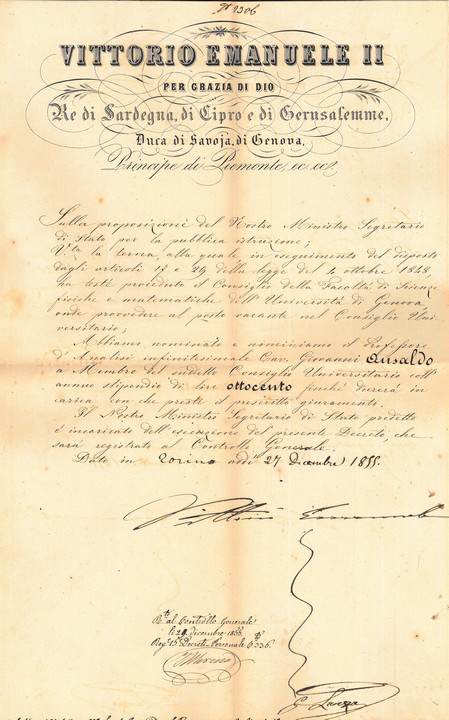 Nº 2306
VITTORIO EMANUELE II
PER GRAZIA DI DIO
Re di Sardegna, di Cipro e di Gerusalemme,
Duca di Savoja, di Genova,
Principe di Piemonte, ec. ec.
Sulla proposizione del Nostro Ministro Segretario
di Stato per la pubblica istruzione;
Vta la terna, alla quale in eseguimento del disposto
dagli articoli 13 e 29 della legge del 4 ottobre 1848,
ha testè proceduto il Consiglio della Facoltà di Scienze
fisiche e matematiche dell'Università di Genova
onde provvedere al posto vacante nel Consiglio Uni-
versitario;
Abbiamo nominato e nominiamo il Professore
d'Analisi infinitesimale Cav. Giovanni Ansaldo
a Membro del suddetto Consiglio Universitario coll'
annuo stipendio di lire ottocento finchè durerà in
carica con che presti il prescritto giuramento.
Il Nostro Ministro Segretario di Stato predetto
è incaricato dell'esecuzione del presente Decreto, che
sarà registrato al Controllo Generale.
Dato in Torino addì 27 dicembre 1855.
Vittorio Emanuele
Rto al Controllo Generale
li 29 dicembre 1855
Regº 15º Decreti Personale Cº 336
G. Lanza